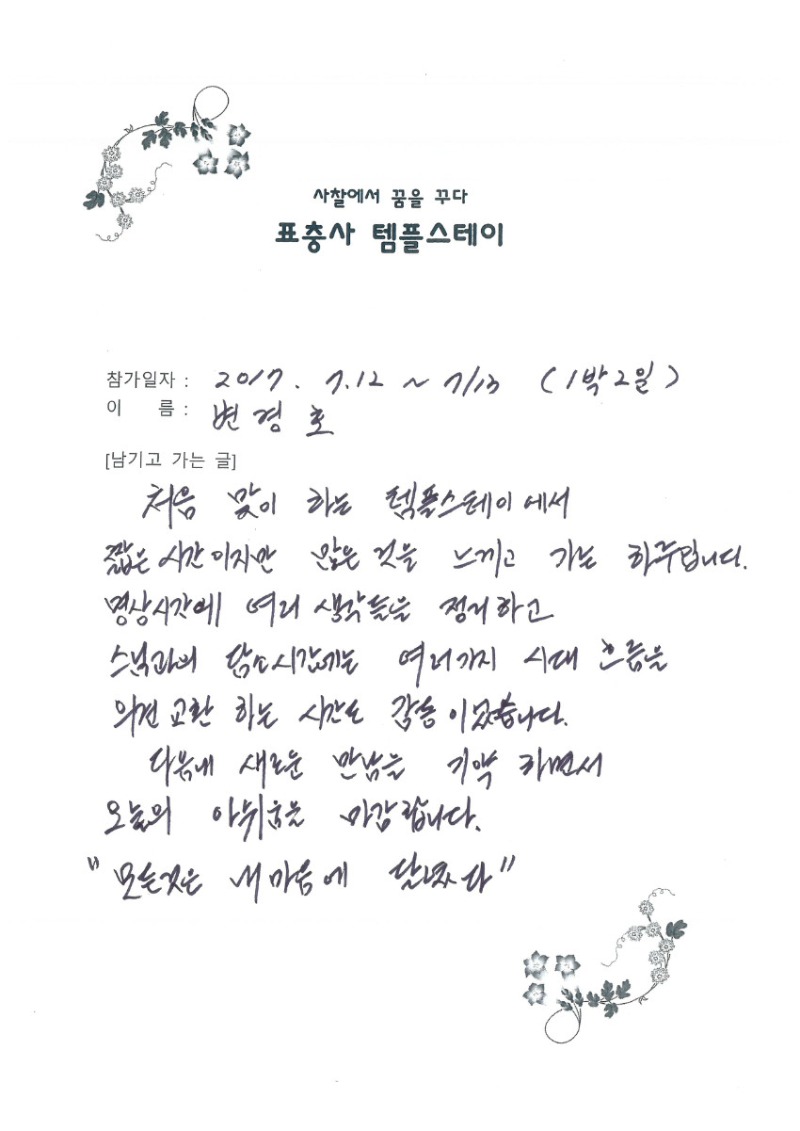 사찰에서 꿈을 꾸다
표충사 템플스테이
참가일자 : 2017. 7.12 ~ 7/13 (1박2일)
이 름 : 변경호
[남기고 가는 글]
처음 맞이 하는 템플스테이에서
짧은 시간이지만 많은 것을 느끼고 가는 하루입니다.
명상시간에 여러 생각들을 정리하고
스님과의 담소시간에는 여러가지 시대 흐름을
의견 교환 하는 시간도 감동이였습니다.
다음에 새로운 만남을 기약 하면서
오늘의 아쉬움을 마감합니다.
"모든것은 내마음에 달렸다"